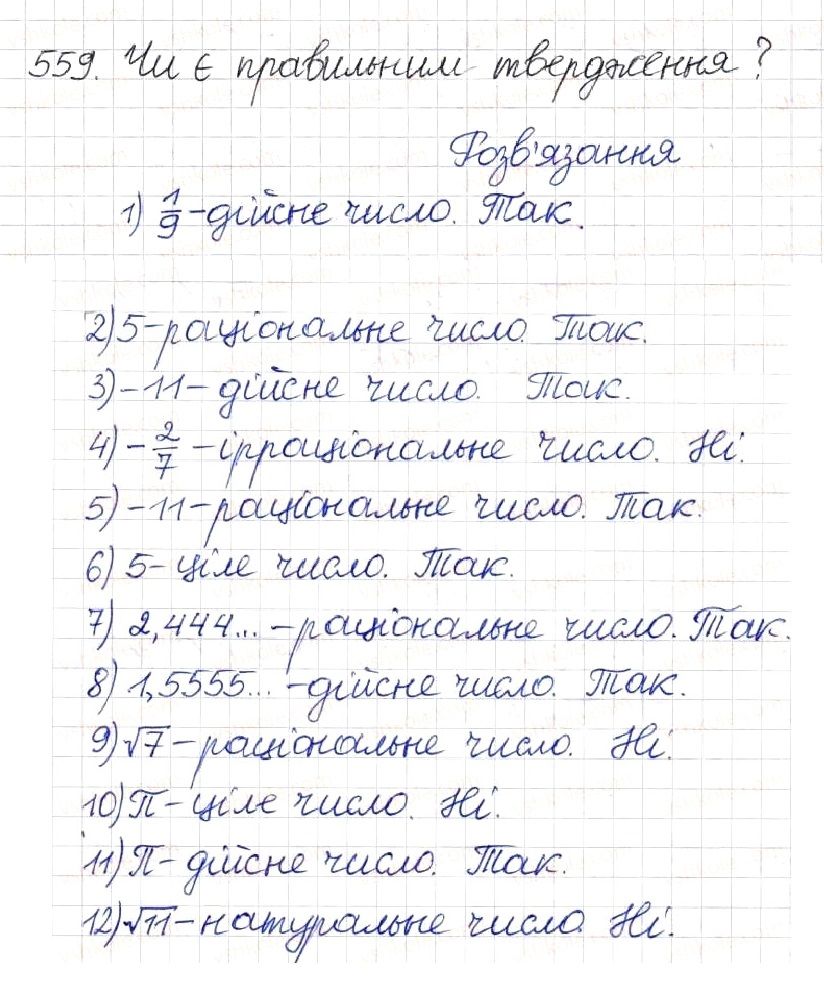 559. Чи є правильним твердження?
Розв'язання
1) 1/9 - дійсне число. Так.
2) 5 - раціональне число. Так.
3) -11 - дійсне число. Так.
4) -2/7 - ірраціональне число. Ні.
5) -11 - раціональне число. Так.
6) 5 - ціле число. Так.
7) 2,444... - раціональне число. Так.
8) 1,5555... - дійсне число. Так.
9) √7 - раціональне число. Ні.
10) П - ціле число. Ні.
11) П - дійсне число. Так.
12) √11 - натуральне число. Ні.